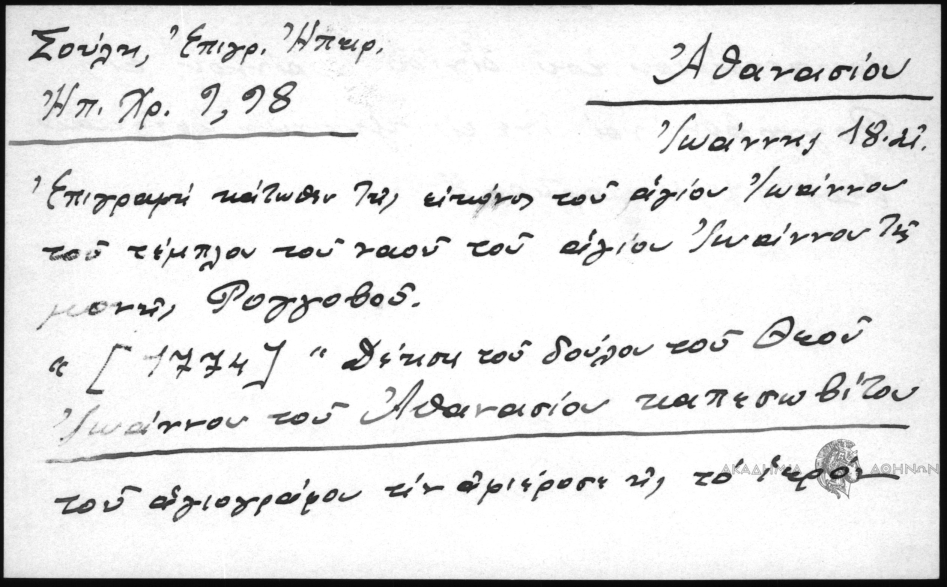 Σούλη, Ἐπιγρ. Ἠπειρ.
Ἠπ. Χρ. 9, 98
Ἀθανασίου
Ἰωάννης 18. αἰ.
Ἐπιγραφὴ κάτωθεν τῆς εἰκόνος τοῦ ἁγίου Ἰωάννου
τοῦ τέμπλου τοῦ ναοῦ τοῦ ἁγίου Ἰωάννου τῆς
μονῆς Ρογγοβοῦ.
« [1774] " Δέησι τοῦ δούλου τοῦ Θεοῦ
Ἰωάννου τοῦ Ἀθανασίου καπεσωβίτου
τοῦ ἁγιογράφου τὴν ἀφιέροσε εἰς τὸ
ΑΚΑΔΗΜΙΑ ΑΘΗΝΩΝ